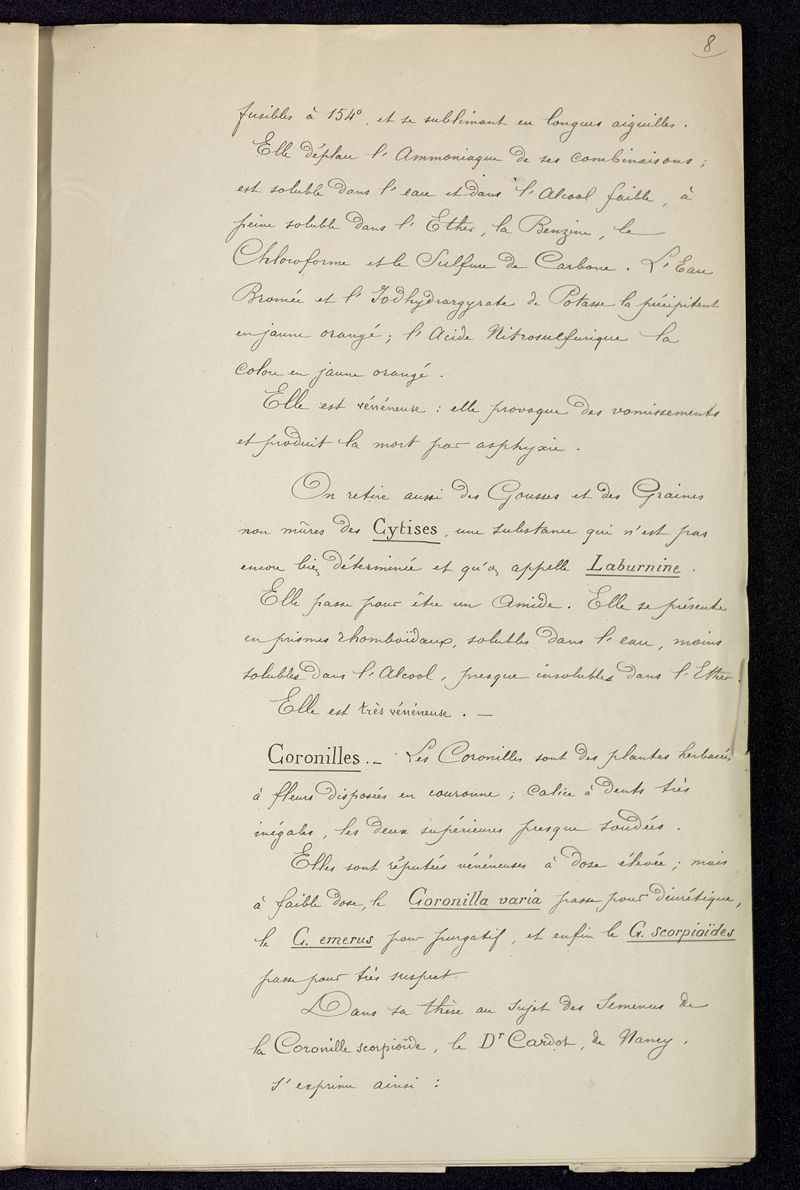 8
fusibles à 154°, et se sublimant en longues aiguilles.
Elle déplace l'Ammoniaque de ses combinaisons ;
est soluble dans l'eau et dans l'Alcool faible, à
peine soluble dans l'Ether, la Benzine, le
Chloroforme et le Sulfure de Carbone. L'Eau
Bromée et l'Iodhydrargyrate de Potasse la précipitent
en jaune orangé ; l'Acide Nitrosulfurique la
colore en jaune orangé.
Elle est vénéneuse : elle provoque des vomissements
et produit la mort par asphyxie.
On retire aussi des Gousses et des Graines
non mûres des Cytises, une substance qui n'est pas
encore bien déterminée et qu'on appelle Laburnine.
Elle passe pour être un Amide. Elle se présente
en prismes rhomboïdaux, solubles dans l'eau, moins
solubles dans l'Alcool, presque insolubles dans l'Ether.
Elle est très vénéneuse. —
Coronilles. — Les Coronilles sont des plantes herbacées
à fleurs disposées en couronne ; calice à dents très
inégales, les deux supérieures presque soudées.
Elles sont réputées vénéneuses à dose élevée ; mais
à faible dose, le Coronilla varia passe pour diurétique,
le C. emerus pour purgatif, et enfin le C. scorpioïdes
passe pour très suspect.
Dans sa thèse au sujet des Semences de
la Coronille scorpioïde, le Dr Cardot, de Nancy,
s'exprime ainsi :